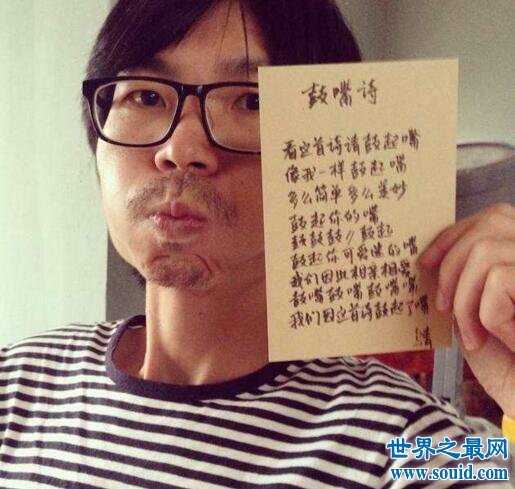 鼓嘴诗
看这首诗请鼓起嘴
像我一样鼓起嘴
多么简单多么美妙
鼓起你的嘴
鼓鼓鼓//鼓起
鼓起你可爱迷的嘴
我们因此相亲相爱
鼓嘴鼓嘴鼓嘴嘴
我们因这首诗鼓起了嘴
世界之最网
www.souid.com